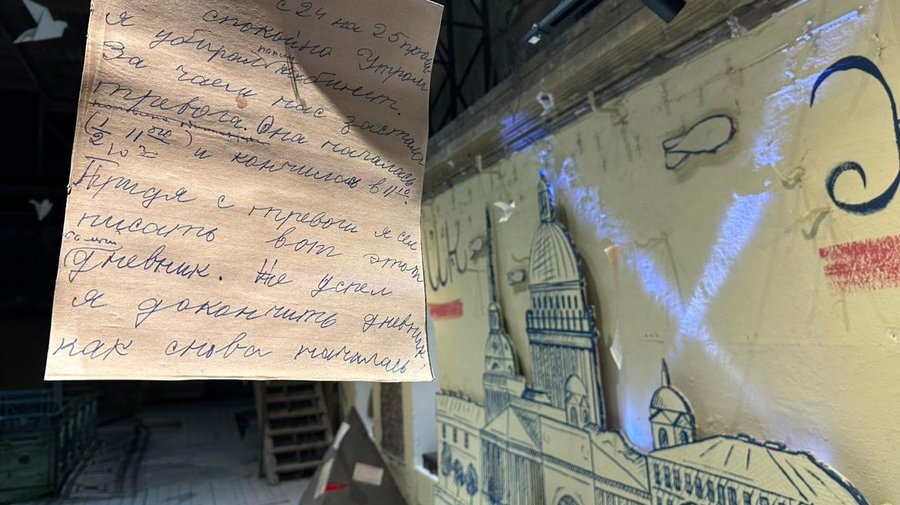 с 24 на 25 прош
я спокойно. Утром
убирал папин кабинет.
За чаем нас застала
тревога. Она началась
(½ 11 ого) и кончилась в 11 20.
Придя с тревоги я сел
писать вот этот
дневник. Не успел
я докончить дневник,
как снова началась